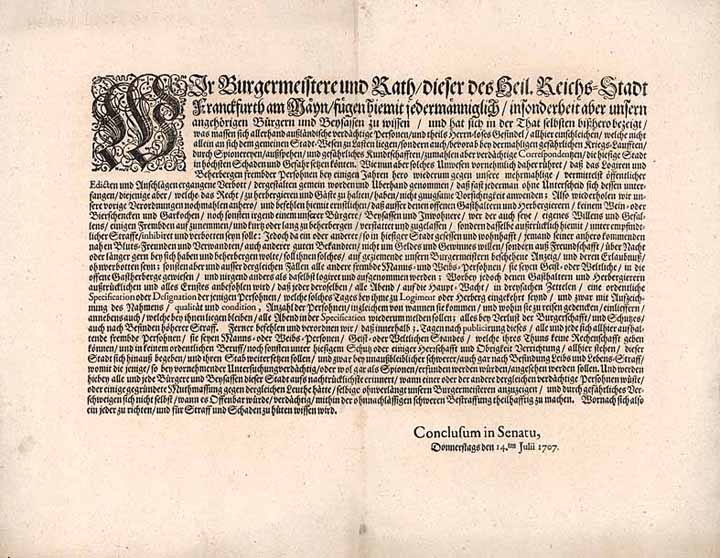 WIr Burgermeistere und Rath/dieser des Heil. Reichs-Stadt
Franckfurth am Mäyn/fügen hiemit jedermänniglich/insonderheit aber unsern
angehörigen Bürgern und Beysassen zu wissen/ und hat sich in der That selbsten bißhero bezeigt/
was massen sich allerhand außländische verdächtige Personen/und theils Herrn-loses Gesindel/allhier einschleichen/welche nicht
allein an sich dem gemeinen Stadt-Wesen zu Lasten liegen/sondern auch/bevorab bey dermahligen gefährlichen Kriegs-Laufften/
durch Spionereyen/außspehen/und gefährliches Kundschafften/unnahen aber verdächtige Correspondentzen/die hiesige Stadt
in höchsten Schaden und Gefahr setzen können. Wie nun aber solches Unwesen vornehmlich daher rühret/daß das Logiren und
Beherbergen frembder Persohnen bey einigen Jahren hero wiederum gegen unsere mehrmahlige/vermittelst öffentlicher
Edicten und Anschlägen ergangene Verbott/dergestalten gemein worden und Überhand genommen/daß fast jederman ohne Unterscheid sich dessen unter-
fangen/diejenige aber/welche das Recht/zu herbergieren und Gäste zu halten/haben/nicht gnugsame Vorsichtigkeit anwenden: Alß wiederholen wir un-
sere vorige Verordnungen nochmahlen anhero/und befehlen hiemit ernstlichen/daß ausser denen offenen Gasthaltern und Herbergierern/keinem Wein-oder
Bierschencken und Garkochen/noch sonsten irgend einem unserer Bürgere/Beysassen und Inwohnere/wer der auch seye/eigenes Willens und Gefal-
lens/einigen Frembden auffzunemmen/und kurtz oder lang zu beherbergen/verstattet und zugelassen/sondern dasselbe außtrücklich hiemit/unter empfind-
licher Straffe/inhibirt und verbotten seyn solle: Jedoch da ein oder anderer/so in hiesiger Stadt gesessen und wohnhafft/jemand seiner anhero kommenden
nahen Bluts-Freunden und Verwandten/auch anderer guten Bekandten/nicht um Geldes und Gewinnes willen/sondern auß Freundschafft/über Nacht
oder länger gern bey sich haben und beherbergen wolte/soll ihme solches/auf geziemende unsern Burgermeistern beschehene Anzeig/und deren Erlaubnuß/
ohnverbotten seyn: sonsten aber und ausser dergleichen Fällen alle andere frembde Manns-und Weibs-Persohnen/sie seyen Geist-oder Weltliche/in die
offene Gastherberge gewiesen/und nirgend anders als daselbst logiret und aufgenommen werden: Worbey jedoch denen Gasthaltern und Herbergierern
außtrücklichen und alles Ernstes anbefohlen wird/daß jeder derselben/alle Abend/auf die Haupt-Wacht/in dreyfachen Zettelen/eine ordentliche
Specification oder Designation der jenigen Persohnen/welche solches Tages bey ihme zu Logiment oder Herberg eingekehrt seynd/und zwar mit Aufzeich-
nung des Nahmens/qualität und condition, Anzahl der Persohnen/ingleichem von wannen sie kommen/und wohin sie zu reisen gedencken/einlieffern/
annebens auch/welche bey ihnen liegen bleiben/alle Abend in der Specification wiederum melden sollen: alles bey Verlust der Burgerschafft/und Schutzes/
auch nach Befinden höherer Straff. Ferner befehlen und verordnen wir/daß innerhalb 3. Tagen nach publicirung dieses/alle und jede sich allhier aufhal-
tende frembde Persohnen/sie seyen Manns-oder Weibs-Personen/Geist-oder Weltlichen Standes/welche ihres Thuns keine Rechenschafft geben
können/und in keinem ordentlichen Beruff/noch sonsten unter hiesigem Schutz oder einiger Herrschafft und Obrigkeit Verrichtung/allhier stehen/dieser
Stadt sich hinauß begeben/und ihren Stab weiter setzen sollen/und zwar bey unaußbleiblicher schwerer/auch gar nach Befindung Leibs und Lebens-Straff/
womit die jenige/so bey vornehmender Untersuchung verdächtig/oder wol gar als Spionen erfunden werden würden/angesehen werden sollen. Und werden
hiebey alle und jede Bürger und Beysassen dieser Stadt aufs nachtrücklichste erinnert/wann einer oder der andere dergleichen verdächtige Persohnen wüste/
oder einige gegründete Muthmassung gegen dergleichen Leuthe hätte/selbige ohnverlängt unsern Burgermeisteren anzuzeigen/und durch gefährliches Ver-
schweigen sich nicht selbst/wann es Offenbar würde/verdächtig/mithin der ohnnachlässigen schweren Bestraffung theilhafftig zu machen. Wornach sich also
ein jeder zu richten/und für Straff und Schaden zu hüten wissen wird.
Conclusum in Senatu,
Donnerstags den 14.ten Julii 1707.